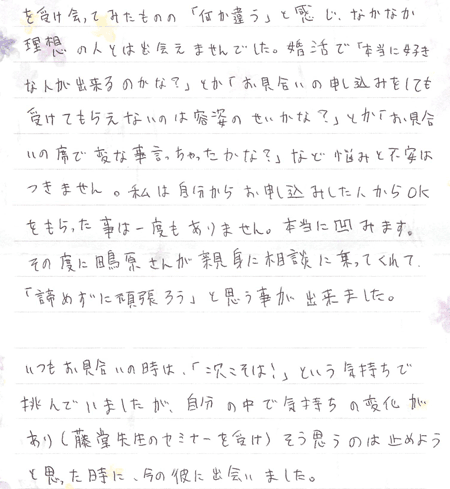 を受け会ってみたものの「何か違う」と感じ、なかなか
理想の人とは出会えませんでした。婚活で「本当に好き
な人が出来るのかな?」とか「お見合いの申し込みをしても
受けてもらえないのは容姿のせいかな?」とか「お見合
いの席で変な事言っちゃったかな?」など悩みと不安は
つきません。私は自分からお申し込みした人からOK
をもらった事は一度もありません。本当に凹みます。
その度に鴫原さんが親身に相談に乗ってくれて、
「諦めずに頑張ろう」と思う事が出来ました。
いつもお見合いの時は、「次こそは!」という気持ちで
挑んでいましたが、自分の中で気持ちの変化が
あり(藤堂先生のセミナーを受け)そう思うのは止めよう
と思った時に、今の彼に出会いました。